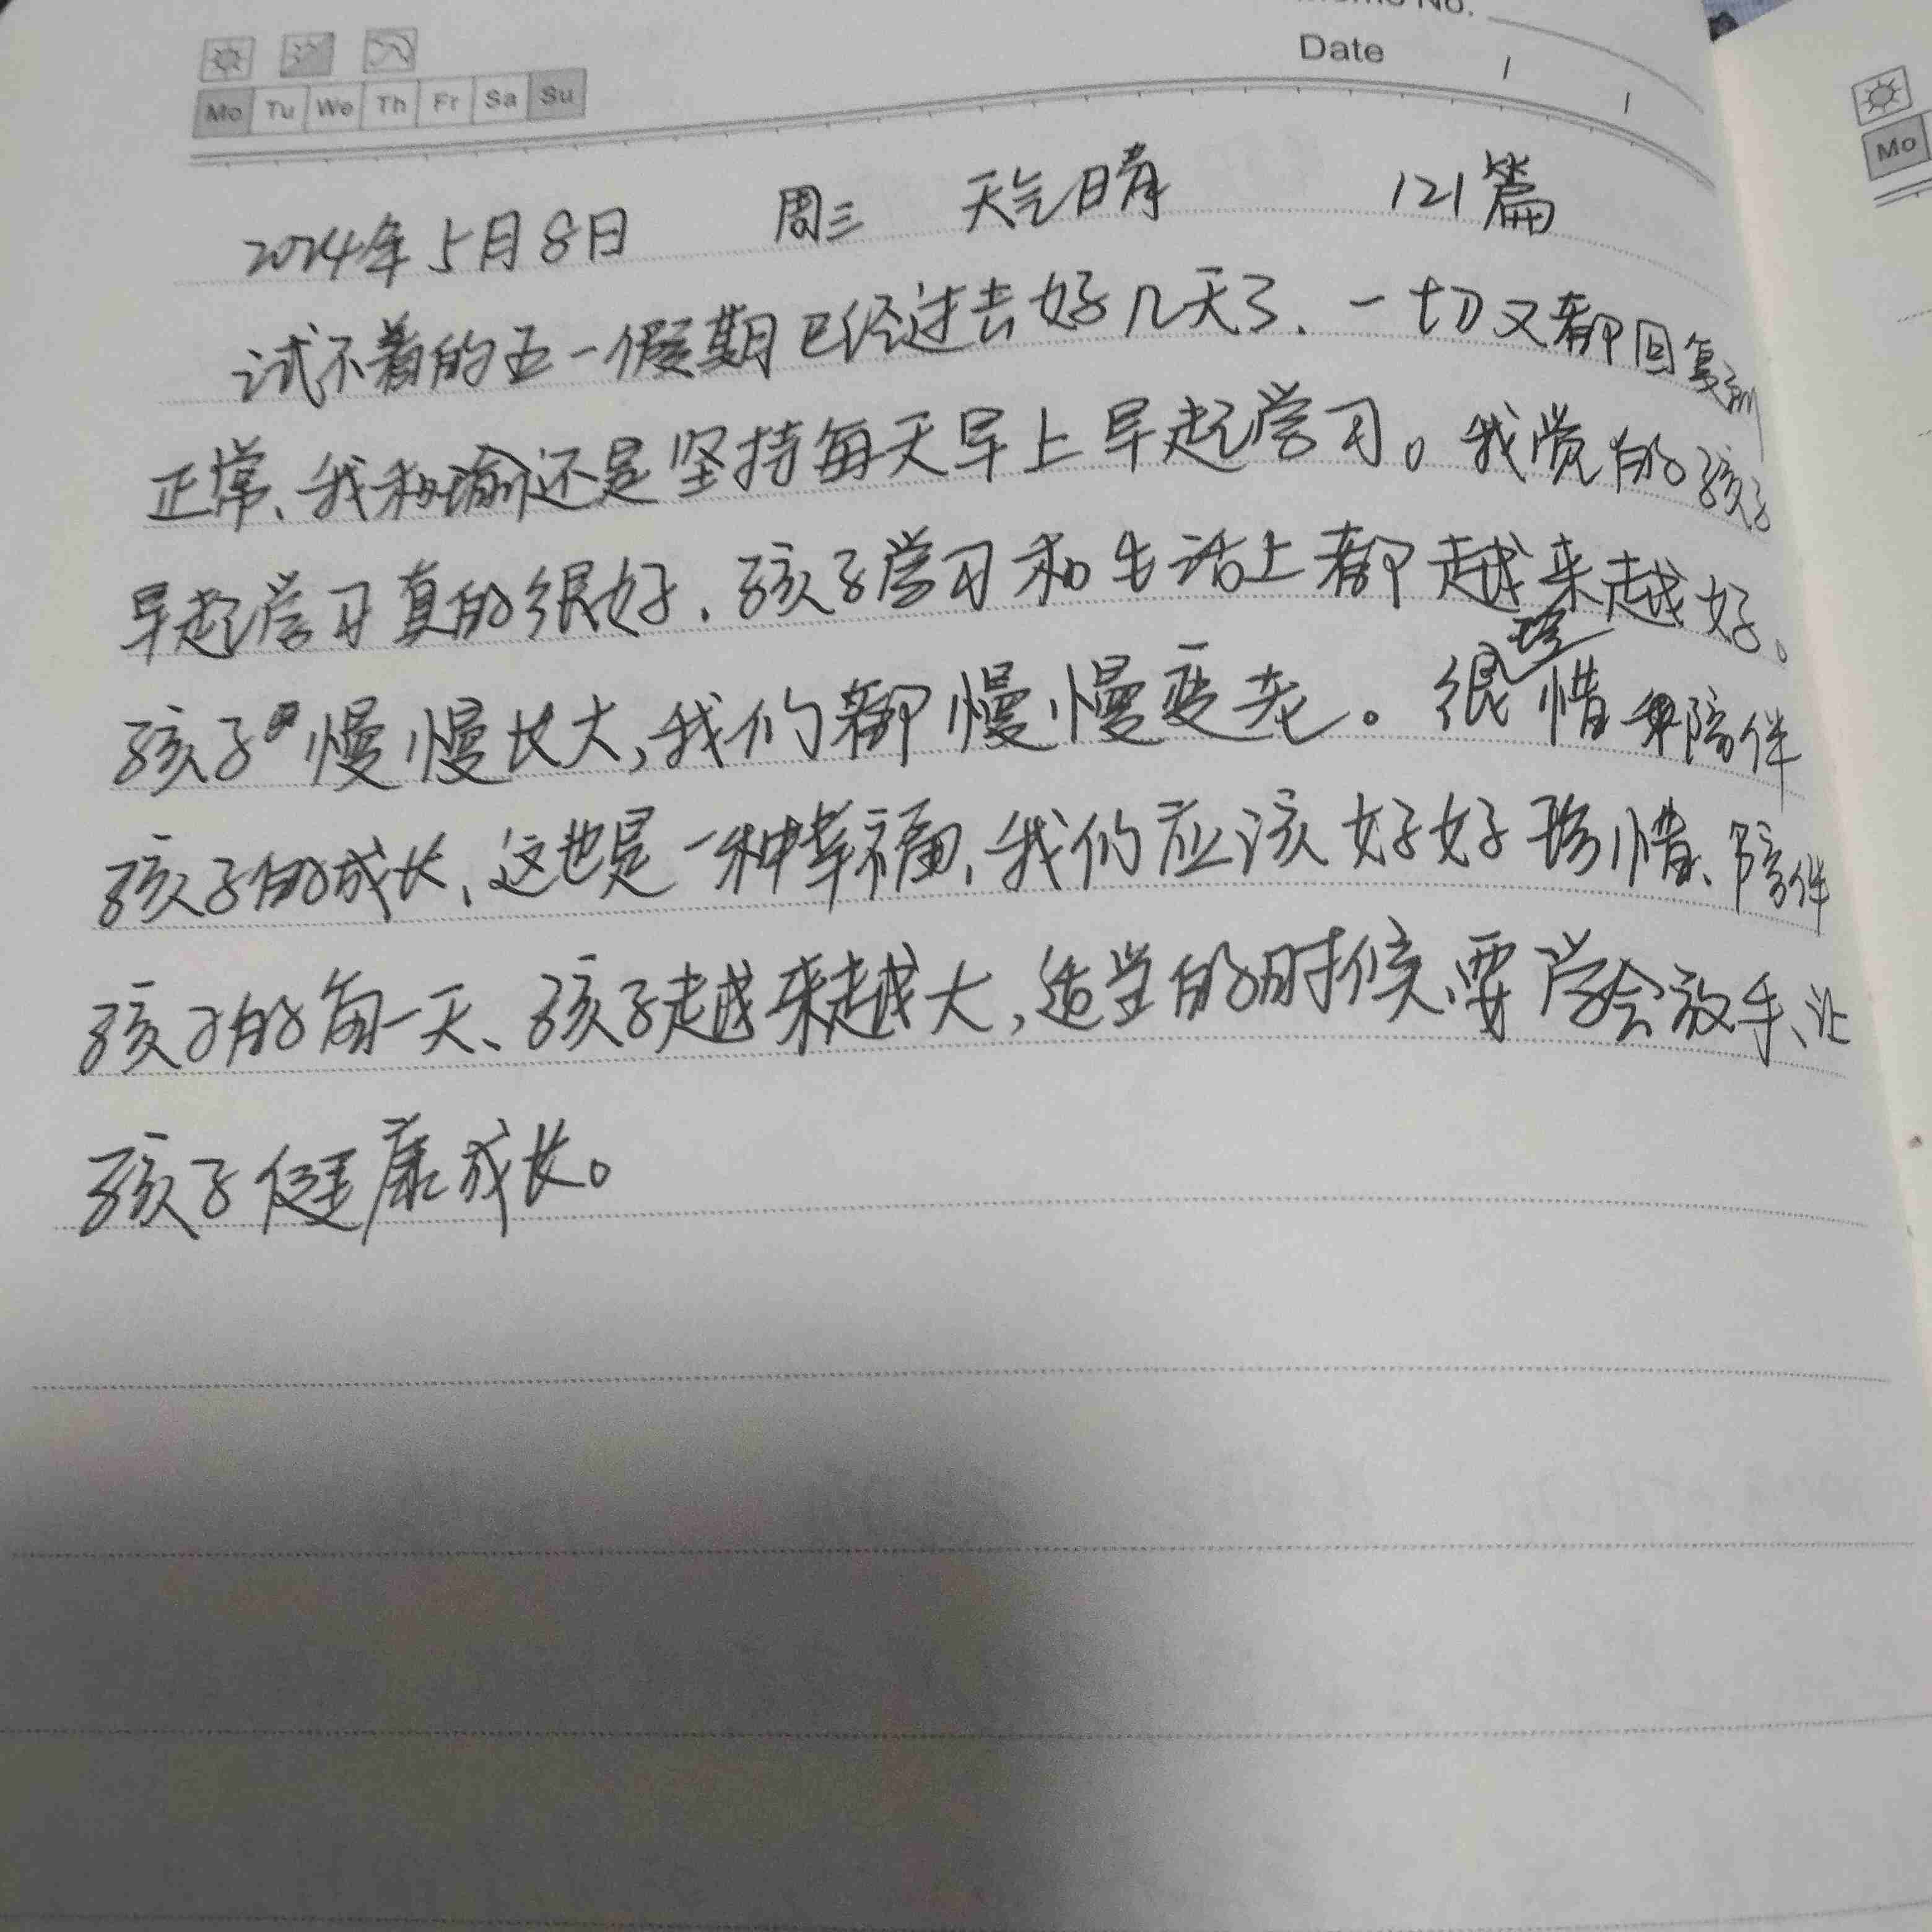 Date
Mo Tu We Th Fr Sa Su
Mo
2024年5月8日 周三 天气晴 121篇
试不着的五一假期已经过去好几天了、一切又都回复到
正常、我和瑜还是坚持每天早上早起学习。我觉的孩子
早起学习真的很好、孩子学习和生活上都越来越好。
孩子慢慢长大,我们都慢慢变老。很珍惜和陪伴
孩子的成长、这也是一种幸福、我们应该好好珍惜、陪伴
孩子的每一天、孩子越来越大,适当的时候、要学会放手、让
孩子健康成长。